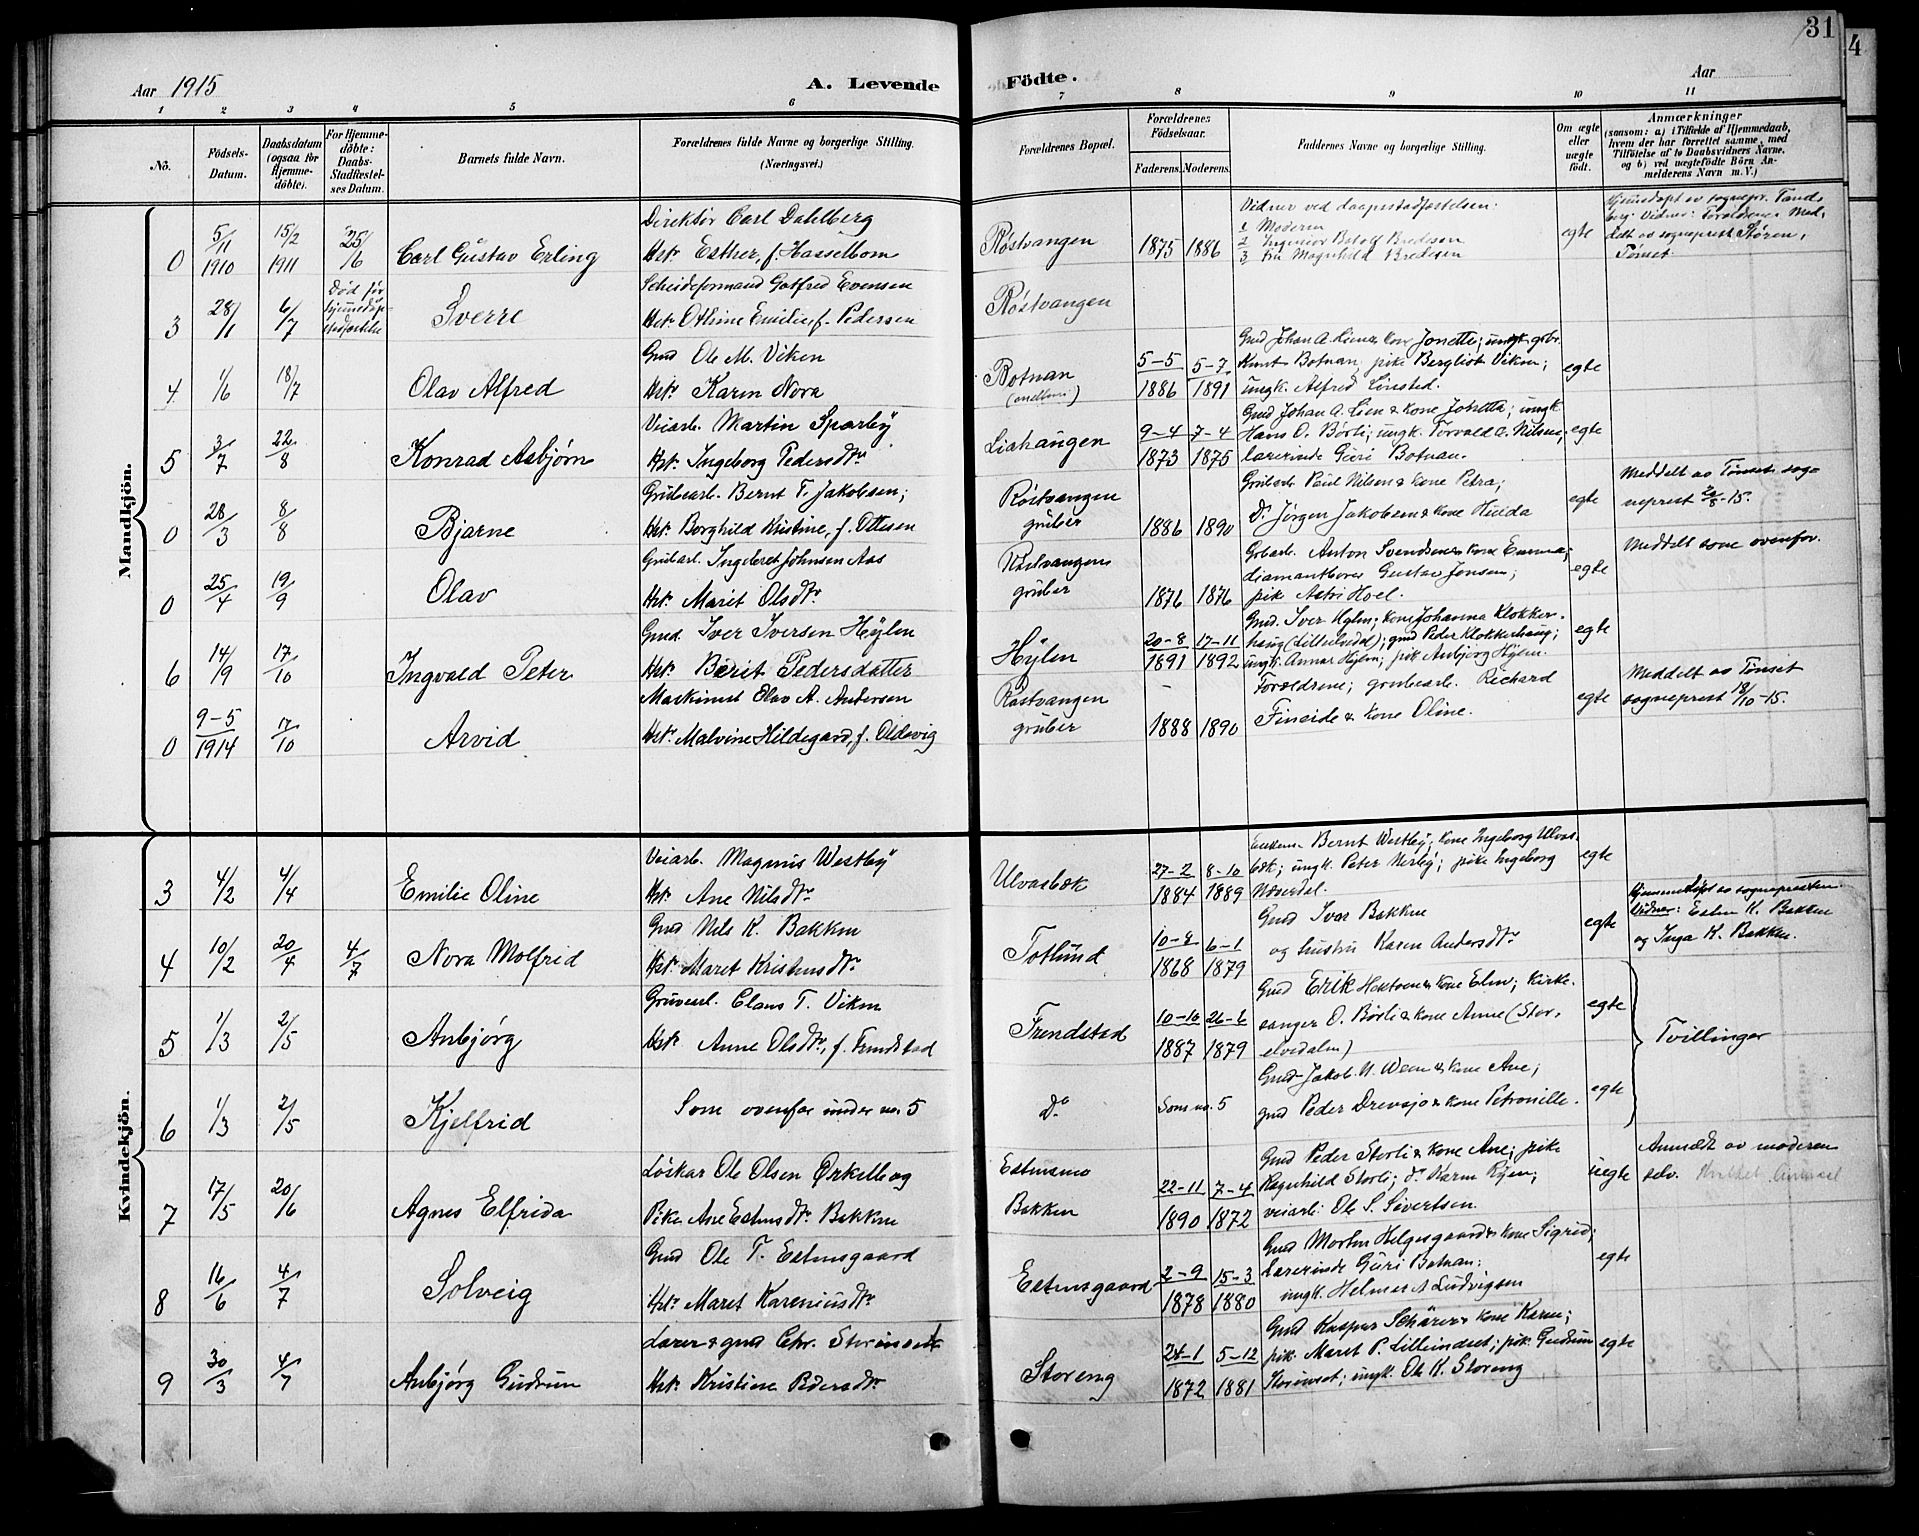 31
4
Aar 1915
A. Levende
Födte.
Aar
1 2 3 4 5 6 7 8 9 10 11
No.
Födsels-Datum.
Daabsdatum (ogsaa for Hjemmedöbte).
For Hjemmedöbte: Daabs-Stadfæstelses Datum.
Barnets fulde Navn.
Forældrenes fulde Navne og borgerlige Stilling. (Næringsvei.)
Forældrenes Bopæl.
Forældrenes Födselsaar.
Faderens. Moderens.
Faddernes Navne og borgerlige Stilling.
Om ægte eller uægte födt.
Anmærkninger
(saasom: a) i Tilfælde af Hjemmedaab, hvem der har forrettet samme, med Tilföielse af to Daabsvidners Navne, og b) ved uægtefödte Börn Anmelderens Navn m. V.)
Mandkjön.
0 5/1 1910 15/2 1911 25/6 Carl Gustav Erling
Direktör Carl Dahlberg
Hst. Esther, f. Hasselbom
Röstvangen 1875 1886
Vidner ved daapsstadfæstelsen:
1 Moderen
2 Ingeniör Botolf Bredesen
3 Fru Magnhild Bredesen
egte
Hjemedöpt av sognepr. Tandberg. Vidner: Forældrene. Meddelt av sogneprest Stören, Tönset.
3 28/1 6/7 Död för hjemedaapstadfæstelse Sverre
Scheideformand Gotfred Evensen
Hst. Othine Emilie, f. Pedersen
Röstvangen
4 1/6 18/7 Olav Alfred
Gmd Ole M. Viken
Hst. Karen Nora
Botnan
5-5 1886 5-7 1891
Gmd Johan A. Lien & kone Jonette; ungk. gbr.
Knut Botnan, pike Bergliot Viken;
ungk. Alfred Linsted.
egte
5 3/7 22/8 Konrad Asbjørn
Veiarb. Martin Sparby
Hst. Ingeborg Pedersdtr
Liahaugen
9-4 1873 7-4 1875
Gmd Johan A. Lien & kone Jonetta; ungk
Hans O. Børli; ungk. Torvald A. Nilsen,
lærerinde Guri Botnan.
egte
0 28/3 8/8 Bjarne
Grubearb. Bernt T. Jakobsen;
Hst. Borghild Kristine, f. Ottesen
Røstvangen gruber
1886 1890
Grubarb Paul Nilsen & kone Petra;
Do Jørgen Jakobsen & kone Hulda
egte
Meddelt av Tønset sogneprest 20/8-15.
0 25/4 19/9 Olav
Grubarb. Ingebret Johnsen Aas
Hst. Marit Olsdtr.
Røstvangens gruber
1876 1876
Grbarb. Anton Svendsen & kone Emma;
diamantborer Gustav Jonsen;
pik Astri Hoel.
egte
Meddelt som ovenfor.
6 14/9 17/10 Ingvald Peter
Gmd. Iver Iversen Høÿlen
Hst. Berit Pedersdatter
Høÿlen
20-8 1891 17-11 1892
Gmd. Iver Høylen; kone Johanna Klokkerhaug (Lilleelvedal); gmd Peder Klokkerhaug;
ungk. Annar Høylen; pik Anbjørg Høylen.
egte
0 9-5 1914 17/10 Arvid
Maskinist Olav A. Andersen
Hst. Malvine Hildegard, f. Oldevig
Røstvangen gruber
1888 1890
Forældrene; grubearb. Richard
Fineide & kone Oline.
egte
Meddelt av Tønset sogneprest 18/10-15.
Kvindekjön.
3 4/2 4/4 Emilie Oline
Veiarb. Magnus Westby
Hst. Ane Nilsdtr
Ulvasbæk
27-2 1884 8-10 1889
Bernt Westby, kone Ingeborg Ulvasbæk; ungk. Peter Nerby; pike Ingeborg
Næverdal.
egte
4 10/2 20/4 4/7 Nora Molfrid
Gmd Nils K. Bakken
Hst. Maret Kristensdtr.
Totlund
1868 6-1 1879
Gmd Ivar Bakken
og hustru Karen Andersdtr
egte
Hjemmedöpt av sognepresten.
Vidner: Esten K. Bakken
og Inga K. Bakken.
5 1/3 2/5 Anbjørg
Gruvearb. Claus T. Viken
Hst. Anne Olsdtr, f. Trondstad
Trondstad
10-10 1887 26-6 1879
Gmd Erik & kone Elen; kirkesanger O. Børli & kone Anne (Storelvedalen)
egte
Tvillinger
6 1/3 2/5 Kjelfrid
Som ovenfor under no. 5
Do
Som no. 5
Gmd Jakob N. Ween & kone Ane;
gmd Peder Drevsjø & kone Petronille.
egte
7 17/5 20/6 Agnes Elfrida
Løskar Ole Olsen Ørkelbog
Pike Ane Estensdtr Bakken
Estensmo
Bakken
22-11 1890 7-4 1872
Gmd Peder Storli & kone Ane; pike
Ragnhild Storli; do Karen Ryen;
veiarb. Ole S. Sivertsen.
uegte
Anmeldt av moderen selv.
8 16/6 4/7 Solveig
Gmd Ole T. Estensgaard
Hst. Maret Kareniusdtr
Estensgaard
2-9 1878 15-3 1880
Gmd Morten Helgesgaard & kone Sigrid;
lærerinde Guri Botnan;
ungk. Helmer A Ludvigsen
egte
9 30/3 4/7 Anbjørg Gudrun
Lærer & gmd Chr. Storinset
Hst. Kristine Pedersdtr
Storeng
24-1 1872 5-12 1881
Gmd Kasper Schärer & kone Karen;
pik Maret P. Lilleindset; pik. Gudrun
Storinset; ungk. Ole K. Storeng
egte